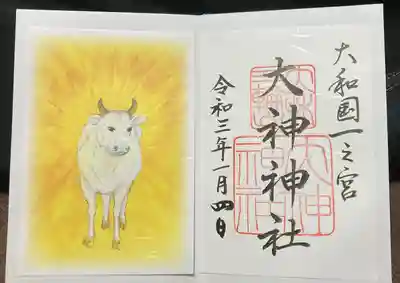 大和国一之宮
大神神社
令和三年一月四日